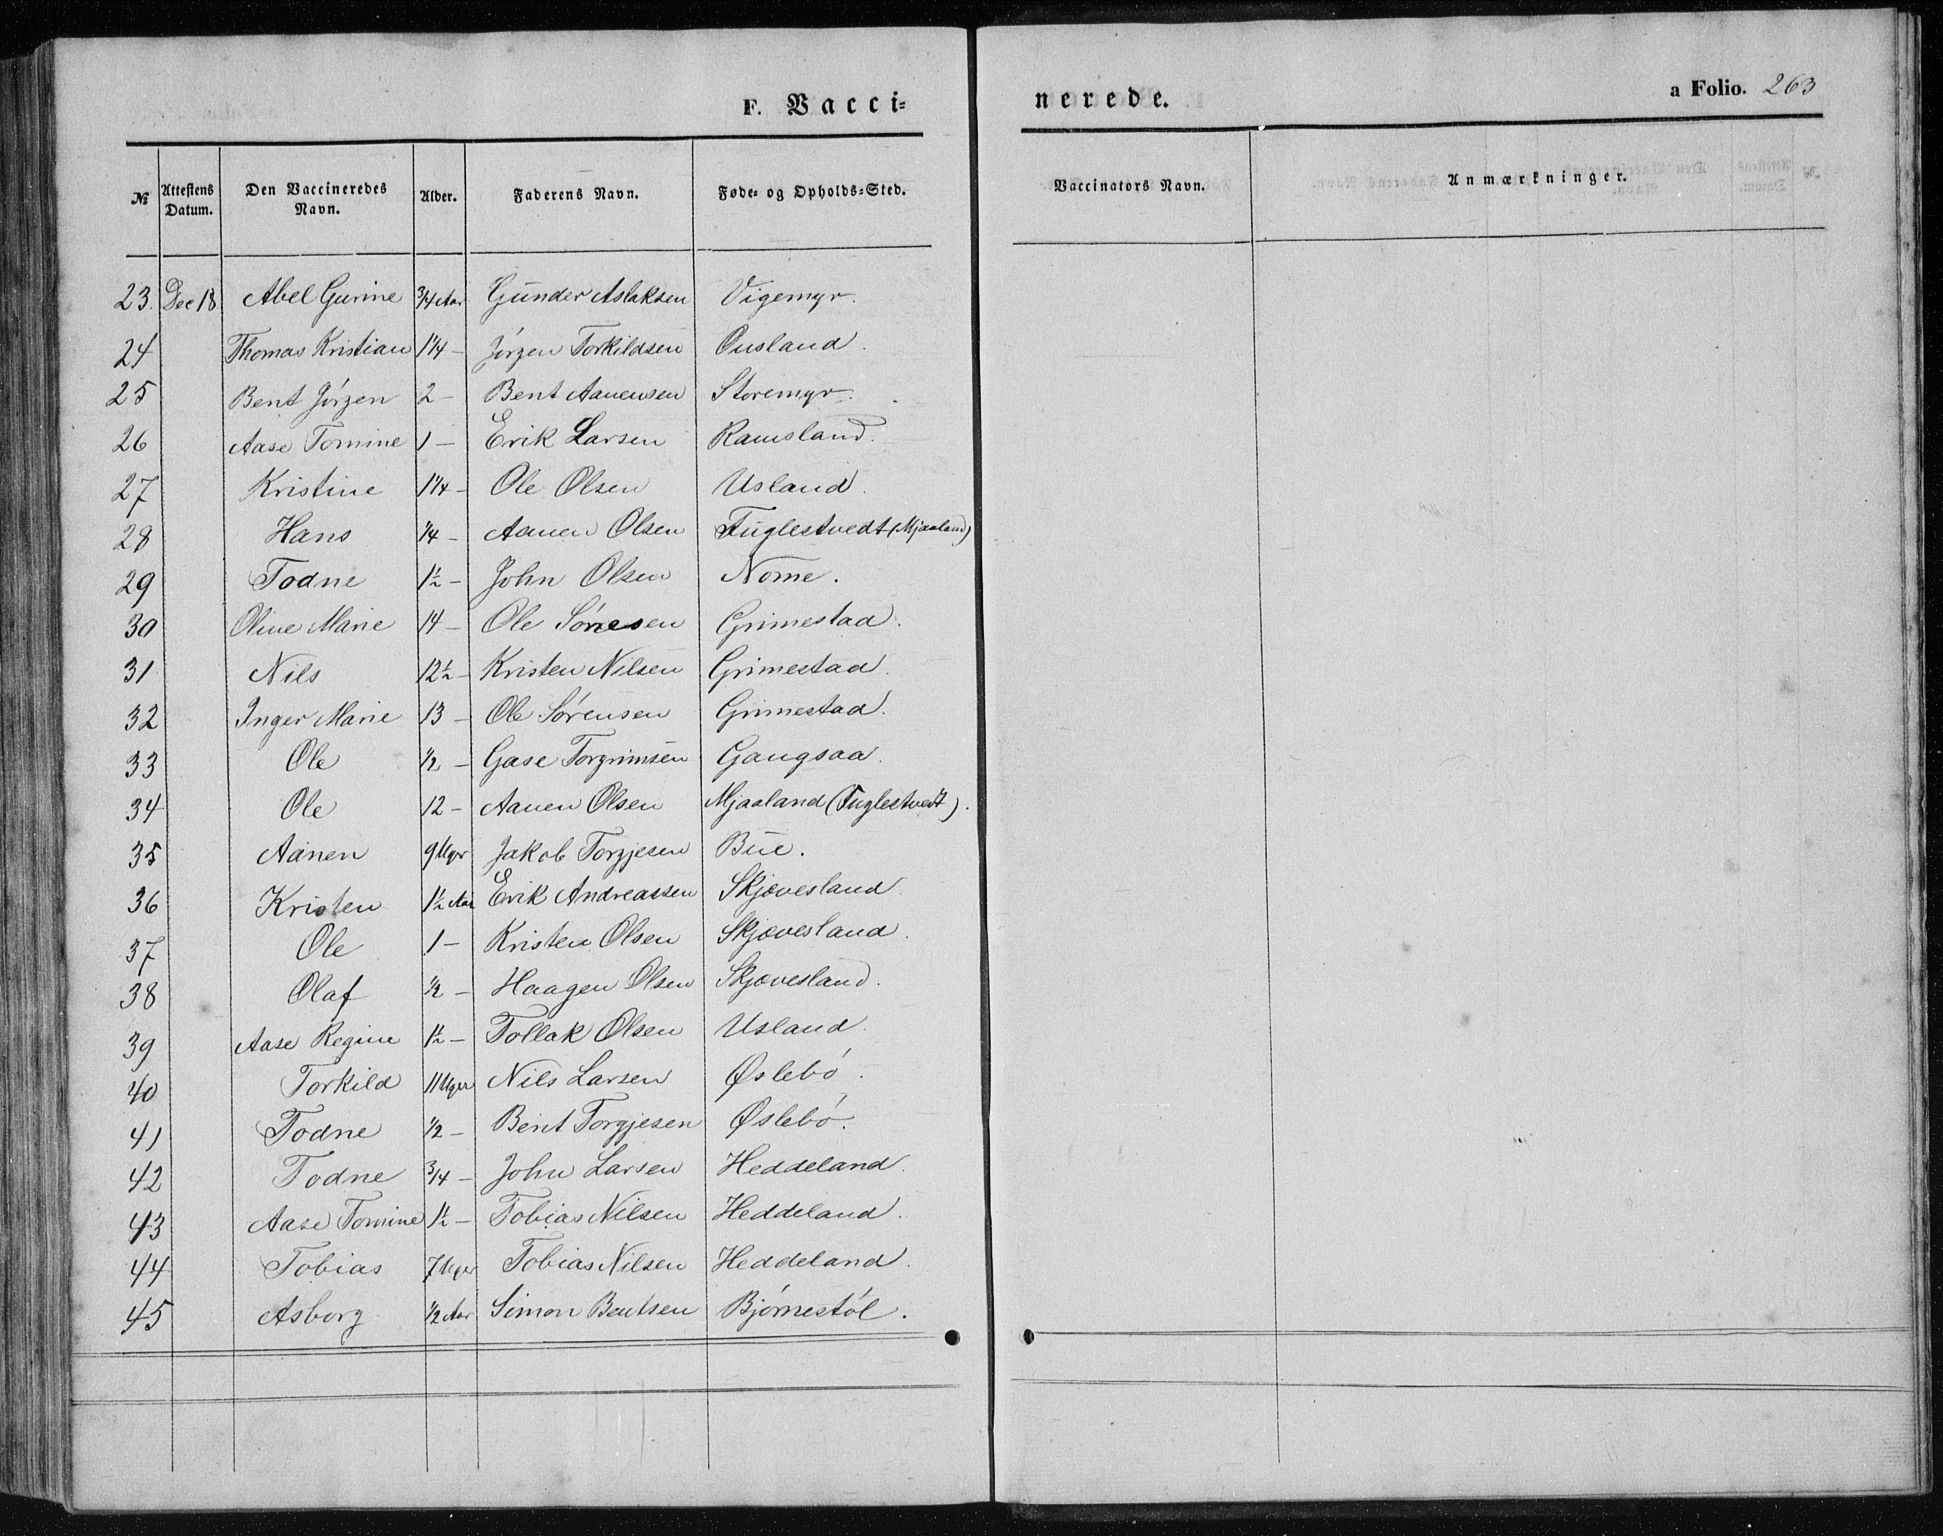 F. Vacci-
nerede.
a Folio. 263
№ Attestens Datum. Den Vaccineredes Navn. Alder. Faderens Navn. Føde- og Opholds-Sted. Vaccinators Navn. Anmærkninger.
23. Dec 18 Abel Gurine 3/4 Aar Gunder Aslaksen Vigemyr.
24 Thomas Kristian 1 1/4 - Jörgen Torkildsen Ousland.
25 Bent Jörgen 2 - Bent Aanensen Storemyr.
26 Aase Tomine 1 - Erik Larsen Ramsland.
27 Kristine 1 1/4 - Ole Olsen Usland.
28 Hans 1/4 - Aanen Olsen Fuglestvedt (Mjaaland)
29 Todne 1 1/2 - John Olsen Nome.
30 Oline Marie 14 - Ole Sörnesen Grimestad.
31 Nils 12 1/2 - Kristen Nilsen Grimestad.
32 Inger Marie 13 - Ole Sörensen Grimestad.
33 Ole 1/2 - Gase Torgrimsen Gangsaa.
34 Ole 12 - Aanen Olsen Mjaaland (Fuglestvedt).
35 Aanen 9 Uger Jakob Torgjesen Bue.
36 Kristen 1 1/2 Aar Erik Andreassen Skjævesland
37 Ole 1 - Kristen Olsen Skjævesland.
38 Olaf 1/2 - Haagen Olsen Skjævesland.
39 Aase Regine 1 1/2 - Tollak Olsen Usland.
40 Torkild 11 Uger Nils Larsen Øslebö.
41 Todne 1/2 - Bent Torgjesen Øslebö.
42 Todne 3/4 - John Larsen Heddeland.
43 Aase Tomine 1 1/2 - Tobias Nilsen Heddeland.
44 Tobias 7 Uger Tobias Nilsen Heddeland.
45 Asborg 1/2 Aar Simon Bentsen Bjørnestöl.